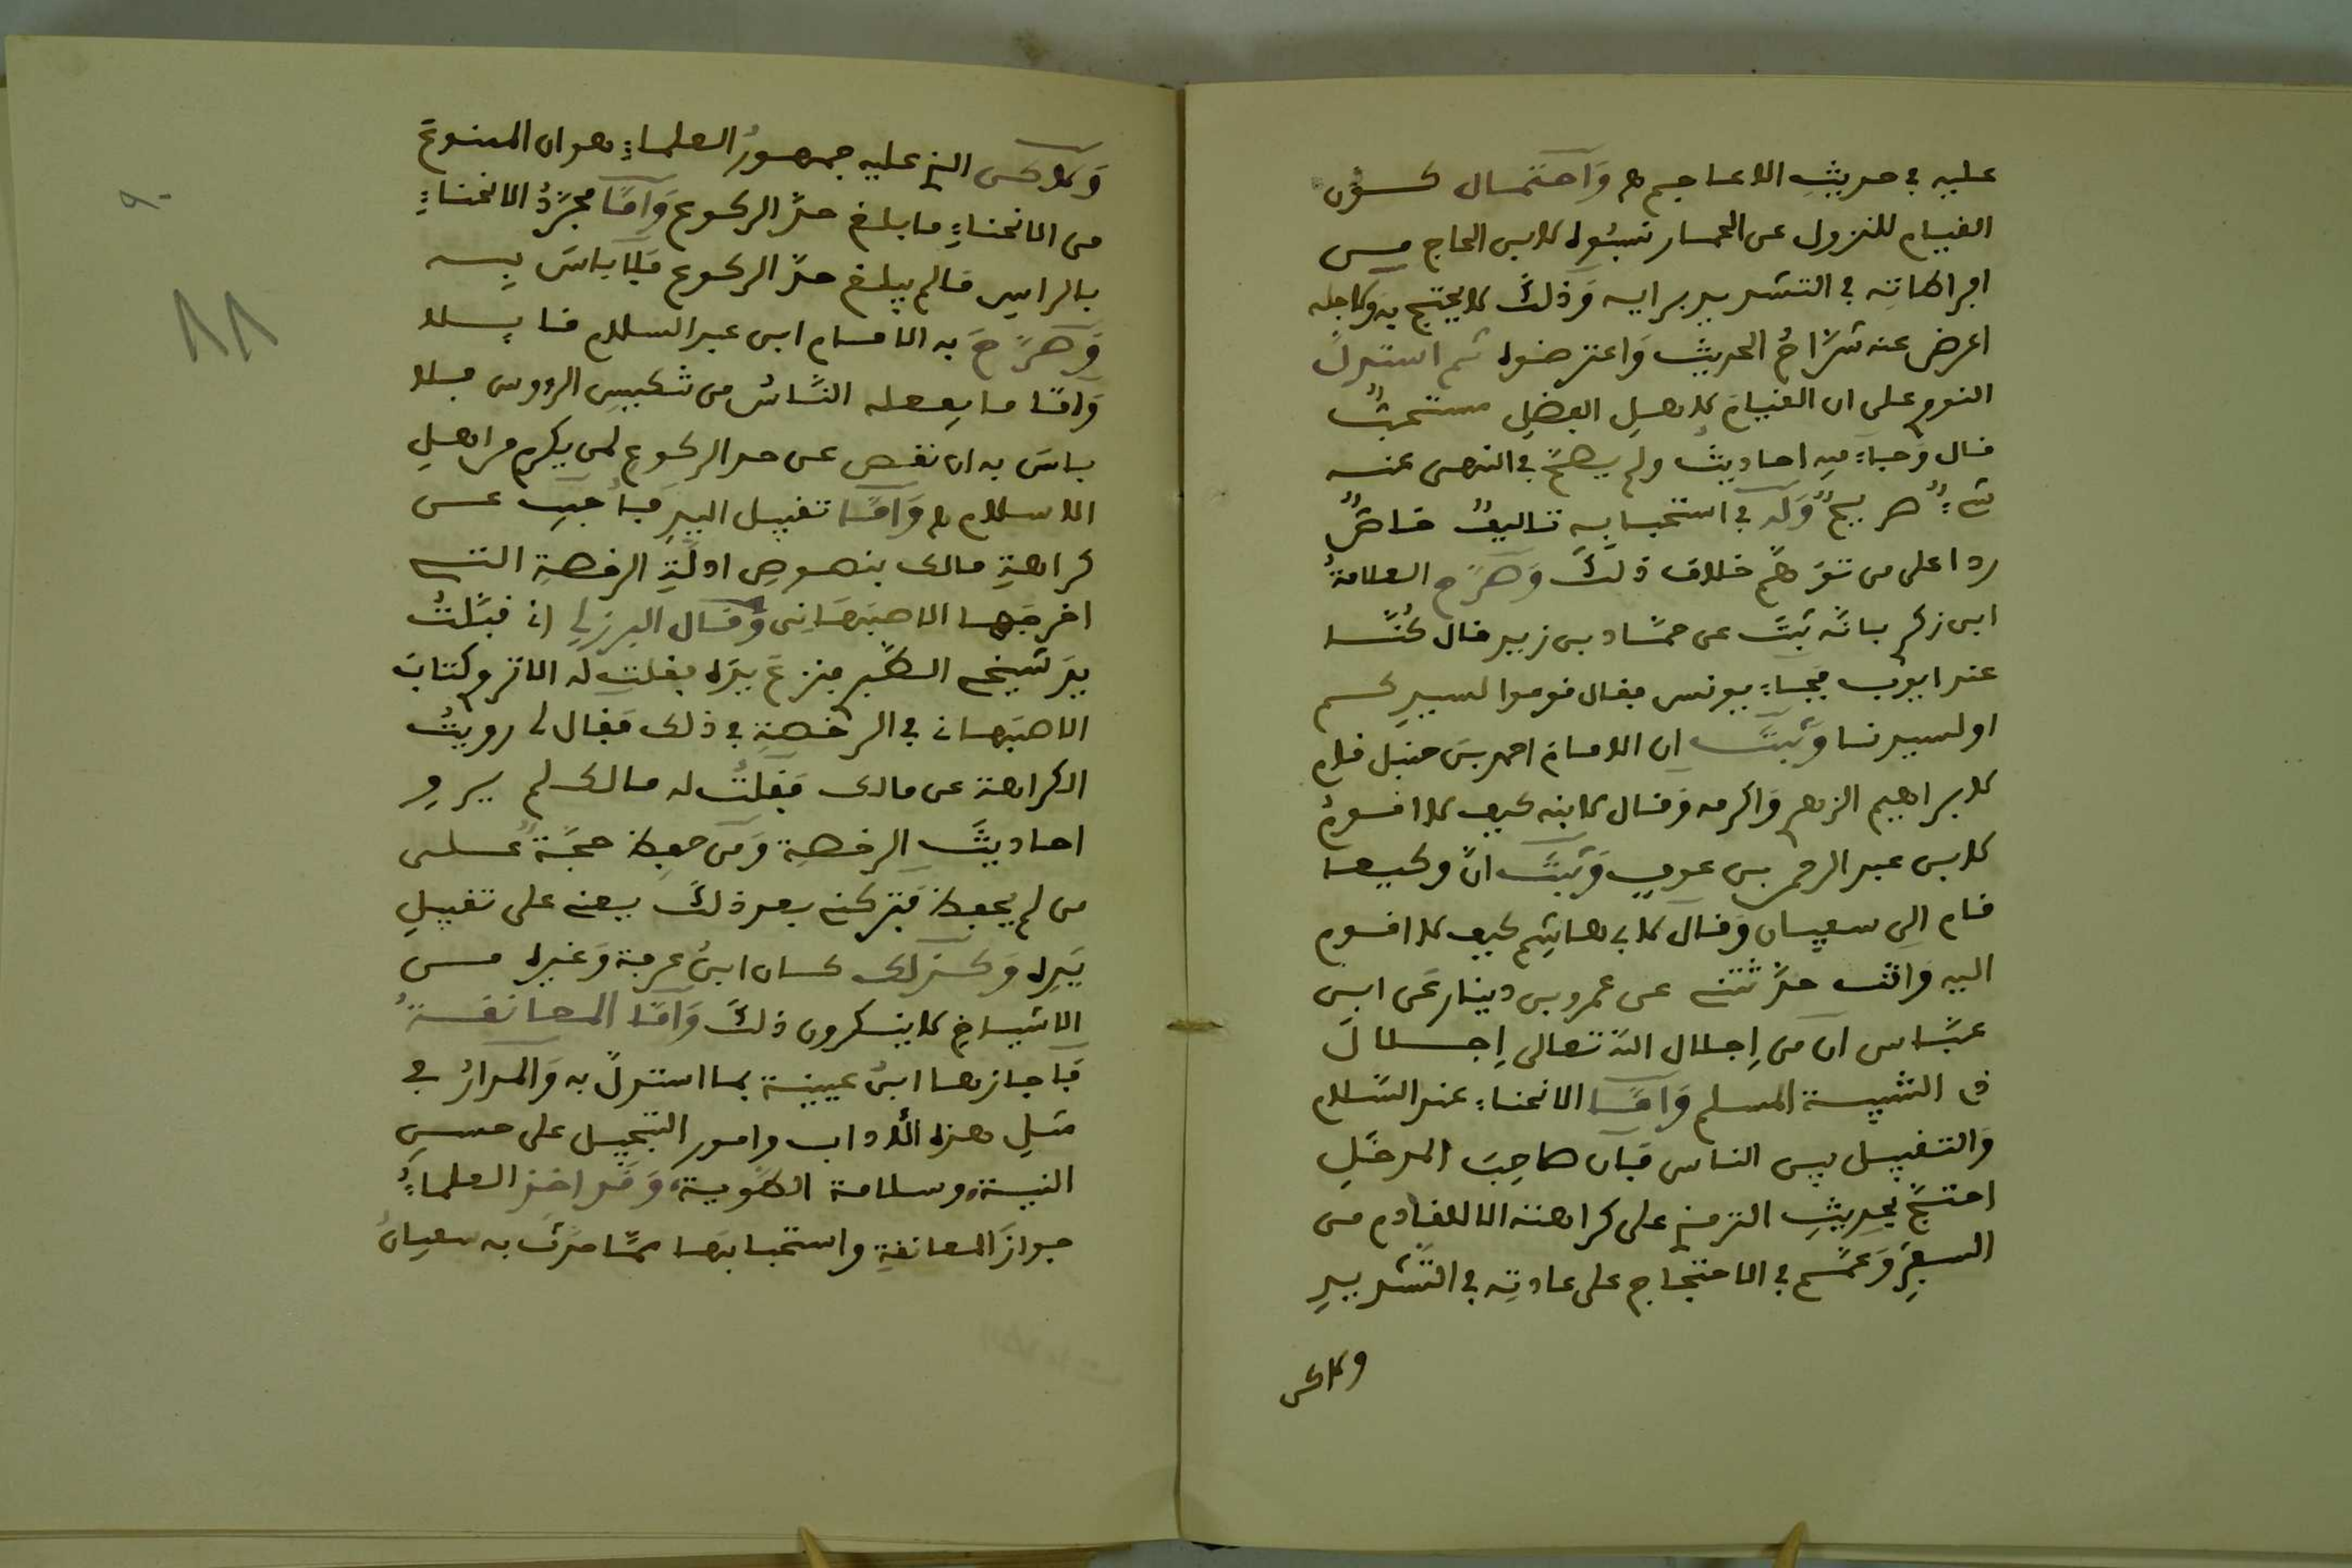 عليه في حديث الاعاجم ﻫ واحتمال كون
القيام للنزول عن الحمار نسبوه لابن الحاج من
افراطاته في التشديد برايه وذلك لا يحتج به ولاجله
اعرض عنه شراح الحديث واعترضوه ثم استدل
النووي على ان القيام لاهل الفضل مستحب
قال وجاء فيه احاديث ولم يصح في النهي عنه
شيء صريح وله في استحبابه تاليف خاص
ردا على من توهم خلاف ذلك وصرح العلامة
ابن زكري بانه ثبت عن حماد بن زيد قال كنا
عند ايوب فجاء يونس فقال قوموا لسيدكم
او لسيدنا وثبت ان الامام احمد بن حنبل قام
لابراهيم الزهري واكرمه وقال لابنه كيف لا اقوم
لابن عبد الرحمن بن عوف وثبت ان وكيعا
قام الى سفيان وقال لا بهايتم كيف لا اقوم
اليه وانت حدثتني عن عمرو بن دينار عن ابن
عباس ان من إجلال الله تعالى إجلال
ذي الشيبة المسلم واما الانحناء عند السلام
والتقبيل بين الناس فان صاحب المدخل
احتج بحديث الترمذي على كراهته الا للقادم من
السفر وعمم في الاحتجاج على عادته في التشديد
ولاكن
ولاكن الذي عليه جمهور العلماء هو ان الممنوع
من الانحناء ما بلغ حد الركوع واما مجرد الانحناء
بالراس مالم يبلغ حد الركوع فلا باس به
وصرح به الامام ابن عبد السلام قايلا
واما ما يفعله الناس من تنكيس الرووس فلا
باس به ان نقص عن حد الركوع لمن يكرم من اهل
الاسلام ﻫ واما تقبيل اليد فاجيب عن
كراهة مالك بنصوص ادلة الرخصة التي
اخرجها الاصبهاني وقال البرزلي اني قبلت
يد شيخي البطرني فنزع يده فقلت له الم تر وكتاب
الاصبهاني في الرخصة في ذلك فقال لي رويت
الكراهة عن مالك فقلت له مالك لم يرو
احاديث الرخصة ومن حفظ حجة على
من لم يحفظ فتركني بعد ذلك يعني على تقبيل
يده وكذلك كان ابن عرفة وغيره من
الاشياخ لا ينكرون ذلك واما المعانقة
فاجازها ابن عيينة بما استدل به والمدار في
مثل هذه الآداب وامور التبجيل على حسن
النية وسلامة الطوية وقد اخذ العلماء
جواز المعانقة واستحبابها مما حدث به سفيان
٨٨
٩٠